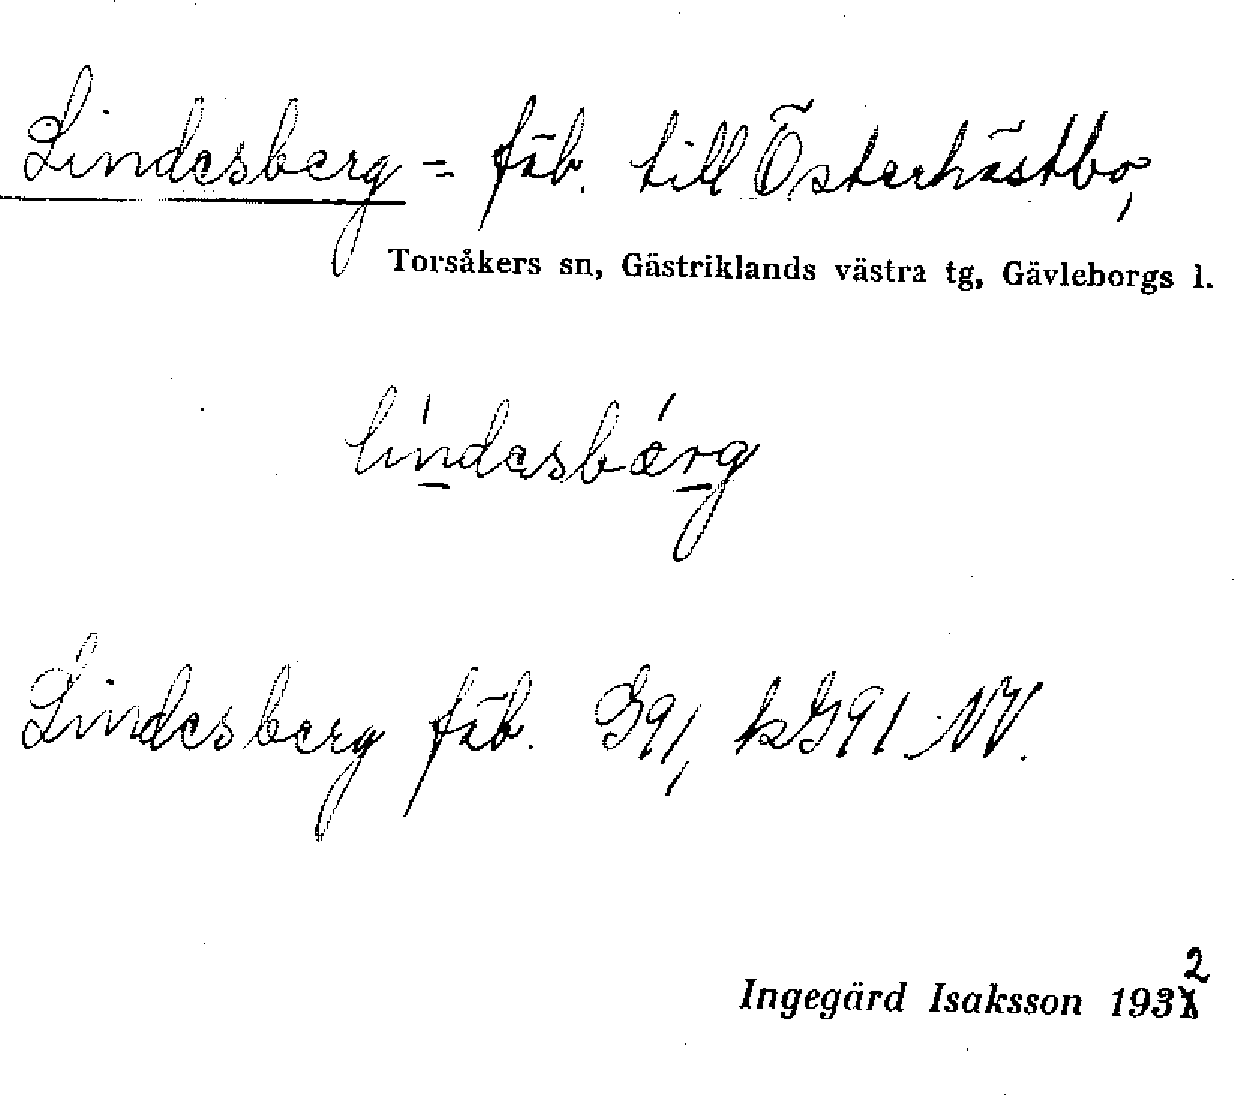 Lindesberg = fäb. till Österhästbo,
Torsåkers sn, Gästriklands västra tg, Gävleborgs l.
líndesbærg
Lindesberg fäb. G91, kG91 NV.
Ingegärd Isaksson 1932